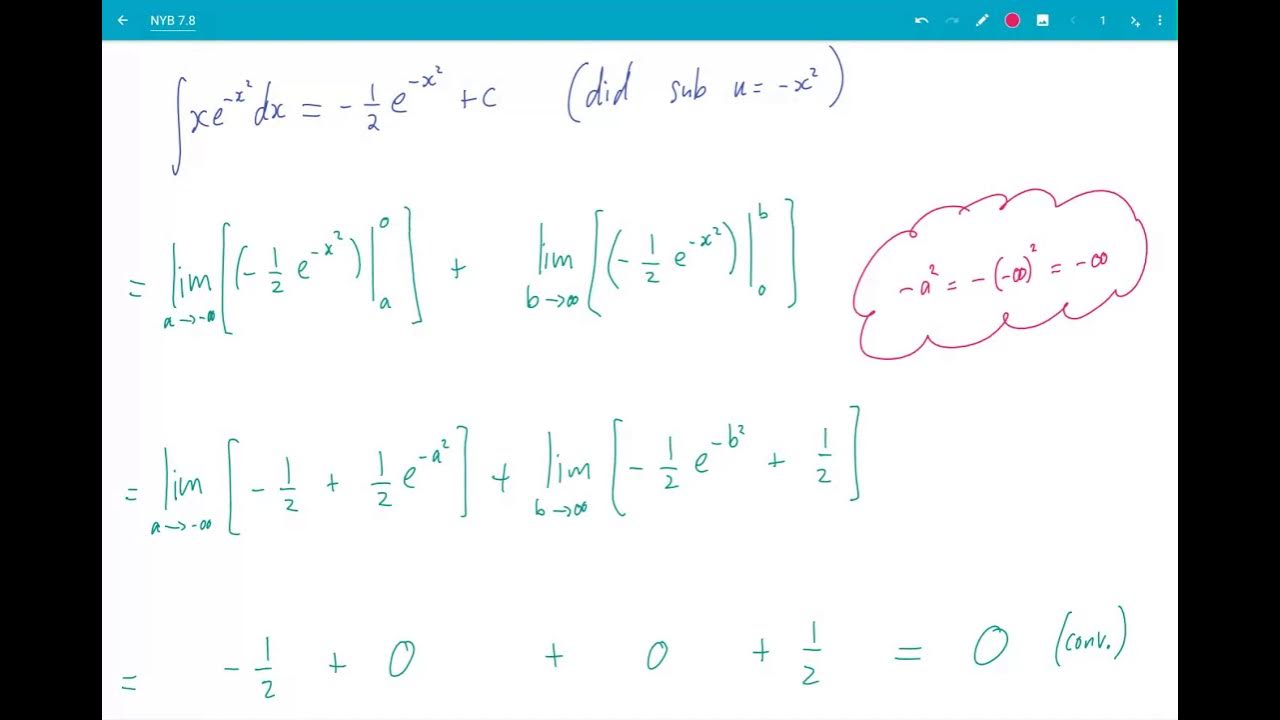 NYB 7.8
1
∫xe^{-x²}dx = -1/2 e^{-x²} + c (did sub u = -x²)
= lim_{a→-∞} [(-1/2 e^{-x²})|_a^0] + lim_{b→∞} [(-1/2 e^{-x²})|_0^b]
-a² = -(-∞)² = -∞
= lim_{a→-∞} [-1/2 + 1/2 e^{-a²}] + lim_{b→∞} [-1/2 e^{-b²} + 1/2]
= -1/2 + 0 + 0 + 1/2 = 0 (conv.)